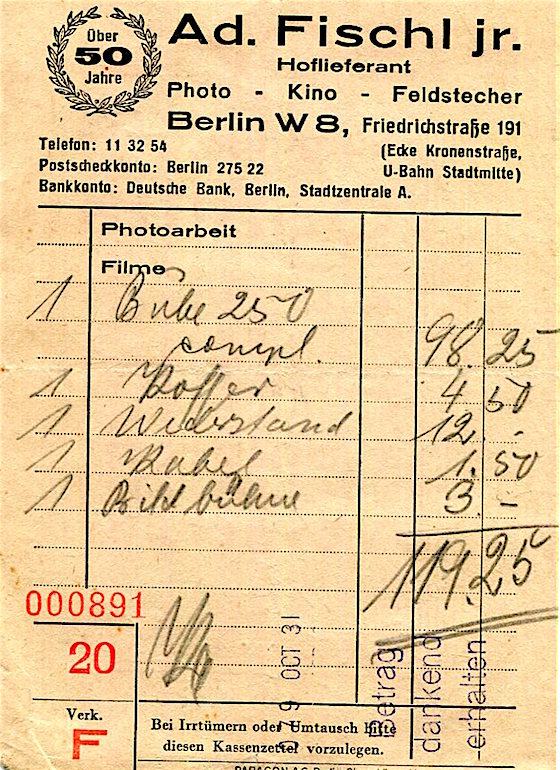 Über
50
Jahre
Ad. Fischl jr.
Hoflieferant
Photo - Kino - Feldstecher
Berlin W 8, Friedrichstraße 191
Telefon: 11 32 54
(Ecke Kronenstraße,
Postscheckkonto: Berlin 275 22
U-Bahn Stadtmitte)
Bankkonto: Deutsche Bank, Berlin, Stadtzentrale A.
Photoarbeit
Filme
1 250
compl. 98.25
1 Koffer 4 50
1 Widerstand 12. -
1 Kabel 1.50
1 Bildbühne 3 -
119.25
000891
20
OCT 31
Betrag
dankend
erhalten
Verk.
F
Bei Irrtümern oder Umtausch bitte
diesen Kassenzettel vorzulegen.